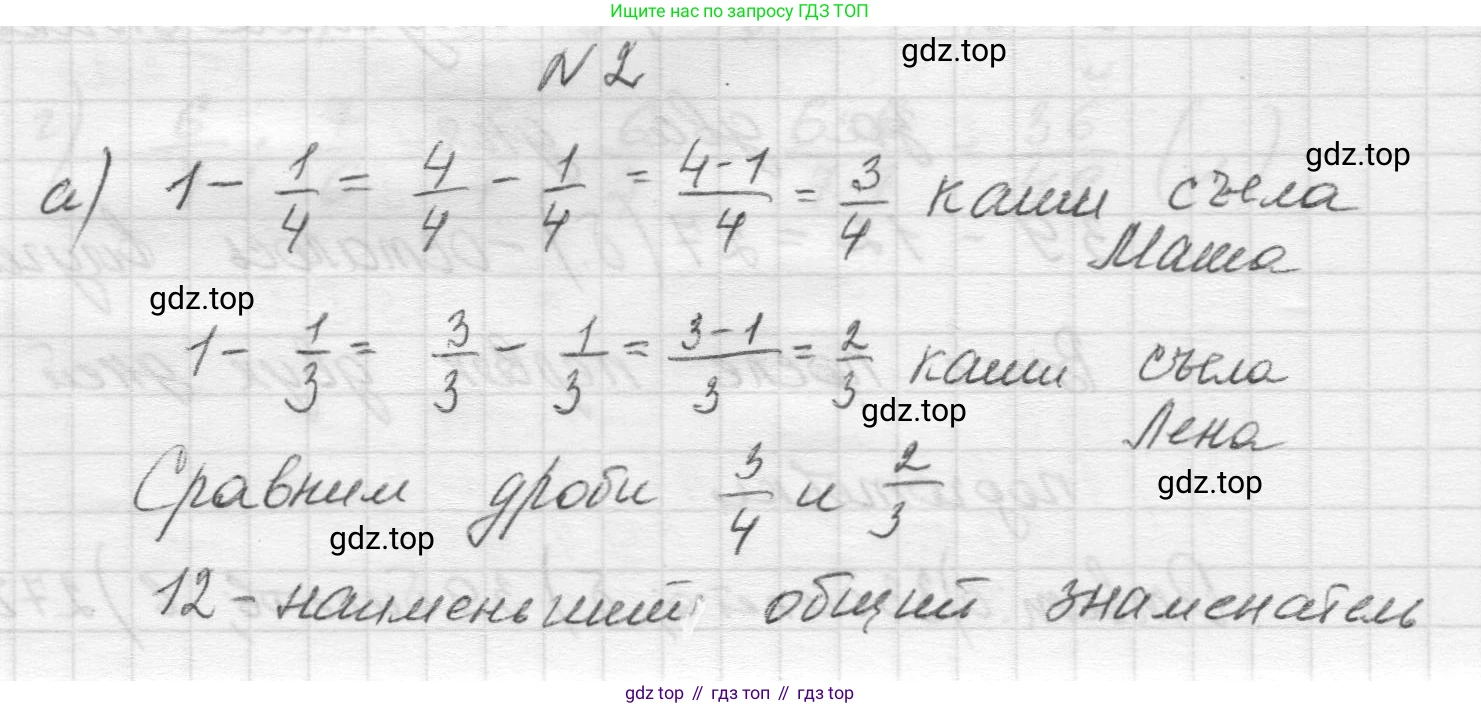 Ищите нас по запросу ГДЗ ТОП
N 2
gdz.top
а) 1 - 1/4 = 4/4 - 1/4 = (4-1)/4 = 3/4 каши съела
gdz.top
Маша
gdz.top
1 - 1/3 = 3/3 - 1/3 = (3-1)/3 = 2/3 каши съела
gdz.top
Лена
Сравним дроби 3/4 и 2/3
gdz.top
gdz.top
12 - наименьший общий знаменатель
gdz.top // гдз топ // гдз top